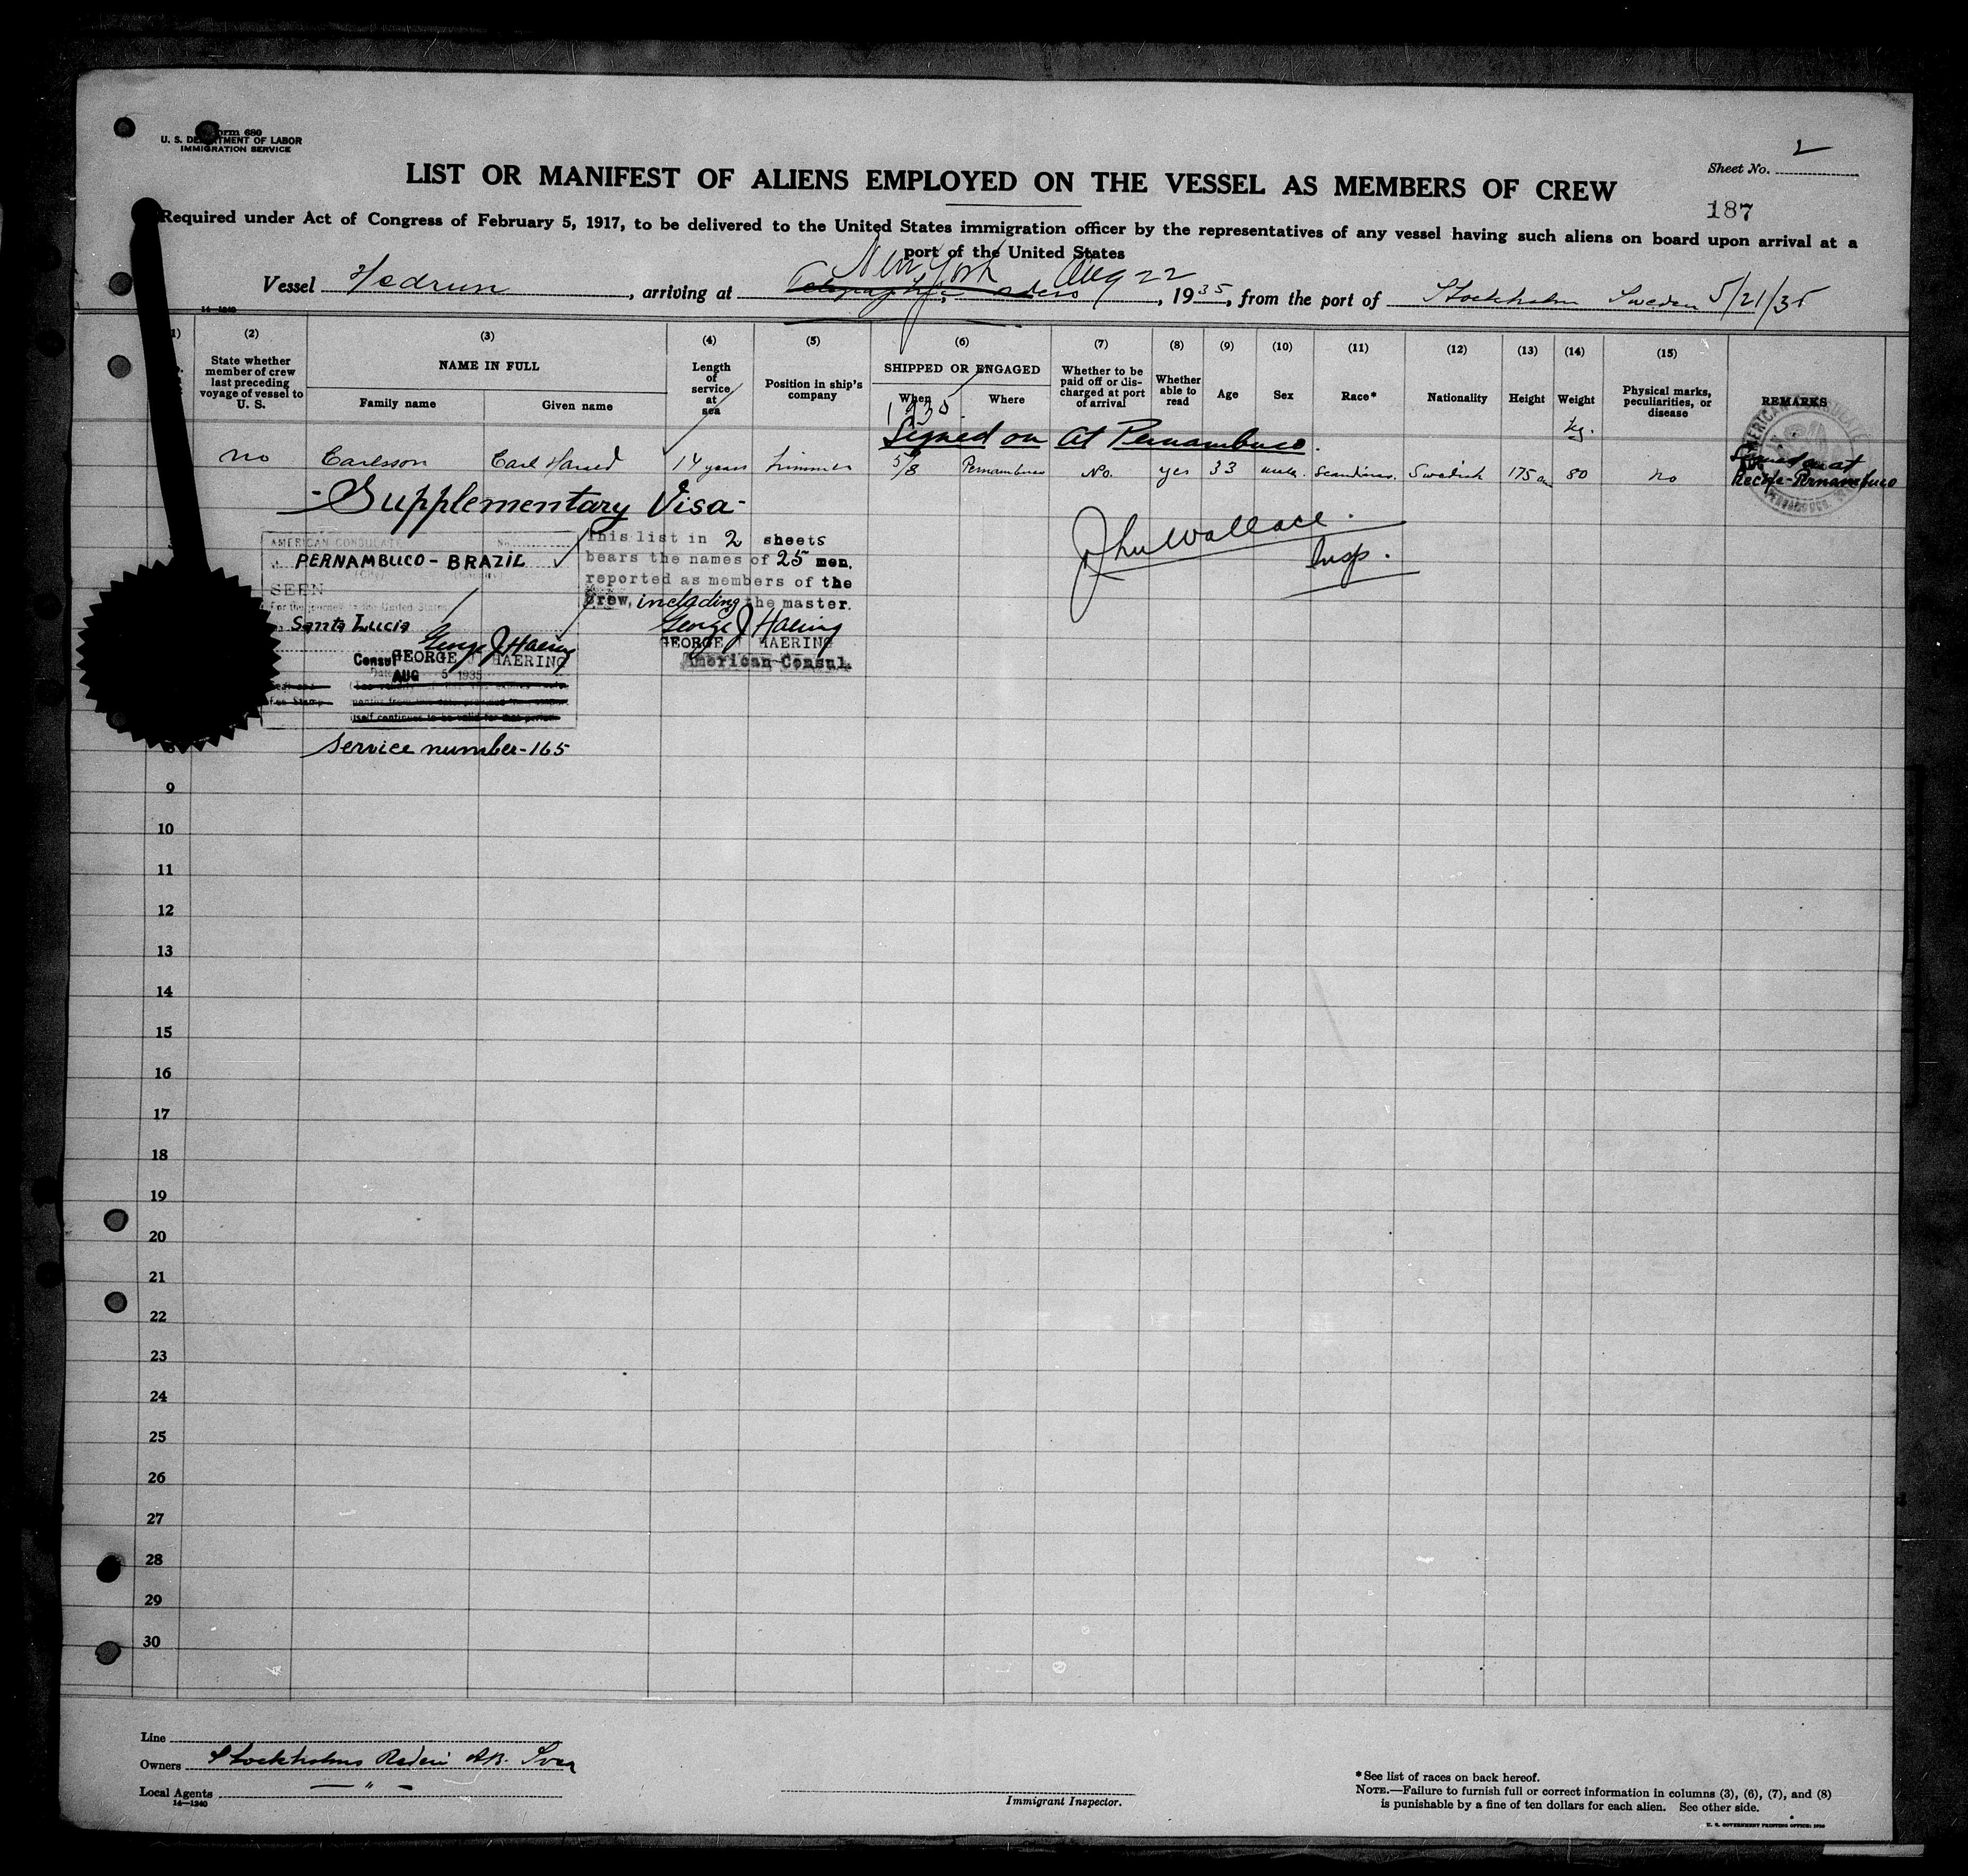 Form 680
U. S. DEPARTMENT OF LABOR
IMMIGRATION SERVICE
Sheet No. 2
LIST OR MANIFEST OF ALIENS EMPLOYED ON THE VESSEL AS MEMBERS OF CREW
187
Required under Act of Congress of February 5, 1917, to be delivered to the United States immigration officer by the representatives of any vessel having such aliens on board upon arrival at a
port of the United States
New York Aug 22
Vessel Hedrun, arriving at Telegraphic orders, 1935, from the port of Stockholm Sweden 5/21/35
14—1240
(1) (2) (3) (4) (5) (6) (7) (8) (9) (10) (11) (12) (13) (14) (15)
State whether member of crew last preceding voyage of vessel to U. S.
NAME IN FULL
Family name
Given name
Length of service at sea
Position in ship's company
SHIPPED OR ENGAGED
When
Where
Whether to be paid off or discharged at port of arrival
Whether able to read
Age
Sex
Race*
Nationality
Height
Weight
Physical marks, peculiarities, or disease
REMARKS
1935
Signed on at Pernambuco.
kg.
no Carlsson Carl Harald 14 years trimmer 5/8 Pernambuco No. yes 33 male. Scandinav. Swedish 175 cm 80 no
Signed on at
Recife-Pernambuco
AMERICAN CONSULATE
- Supplementary Visa -
AMERICAN CONSULATE No.
PERNAMBUCO - BRAZIL
SEEN
For the journey to the United States
Santa Lucia
George J Haering
Consul GEORGE J HAERING
Date AUG 5 1935
Service number - 165
This list in 2 sheets
bears the names of 25 men,
reported as members of the
crew, including the master.
George J Haering
GEORGE J HAERING
American Consul.
John Wallace.
Insp.
8
9
10
11
12
13
14
15
16
17
18
19
20
21
22
23
24
25
26
27
28
29
30
Line
Owners Stockholms Rederi AB. Svea
Local Agents — " —
14—1240
Immigrant Inspector.
* See list of races on back hereof.
NOTE.—Failure to furnish full or correct information in columns (3), (6), (7), and (8)
is punishable by a fine of ten dollars for each alien. See other side.
U. S. GOVERNMENT PRINTING OFFICE: 1930